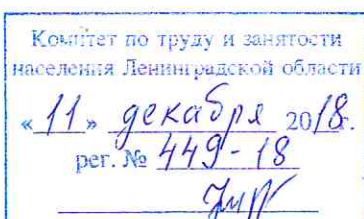 Комитет по труду и занятости
населения Ленинградской области
«11» декабря 2018г.
рег. № 449-18